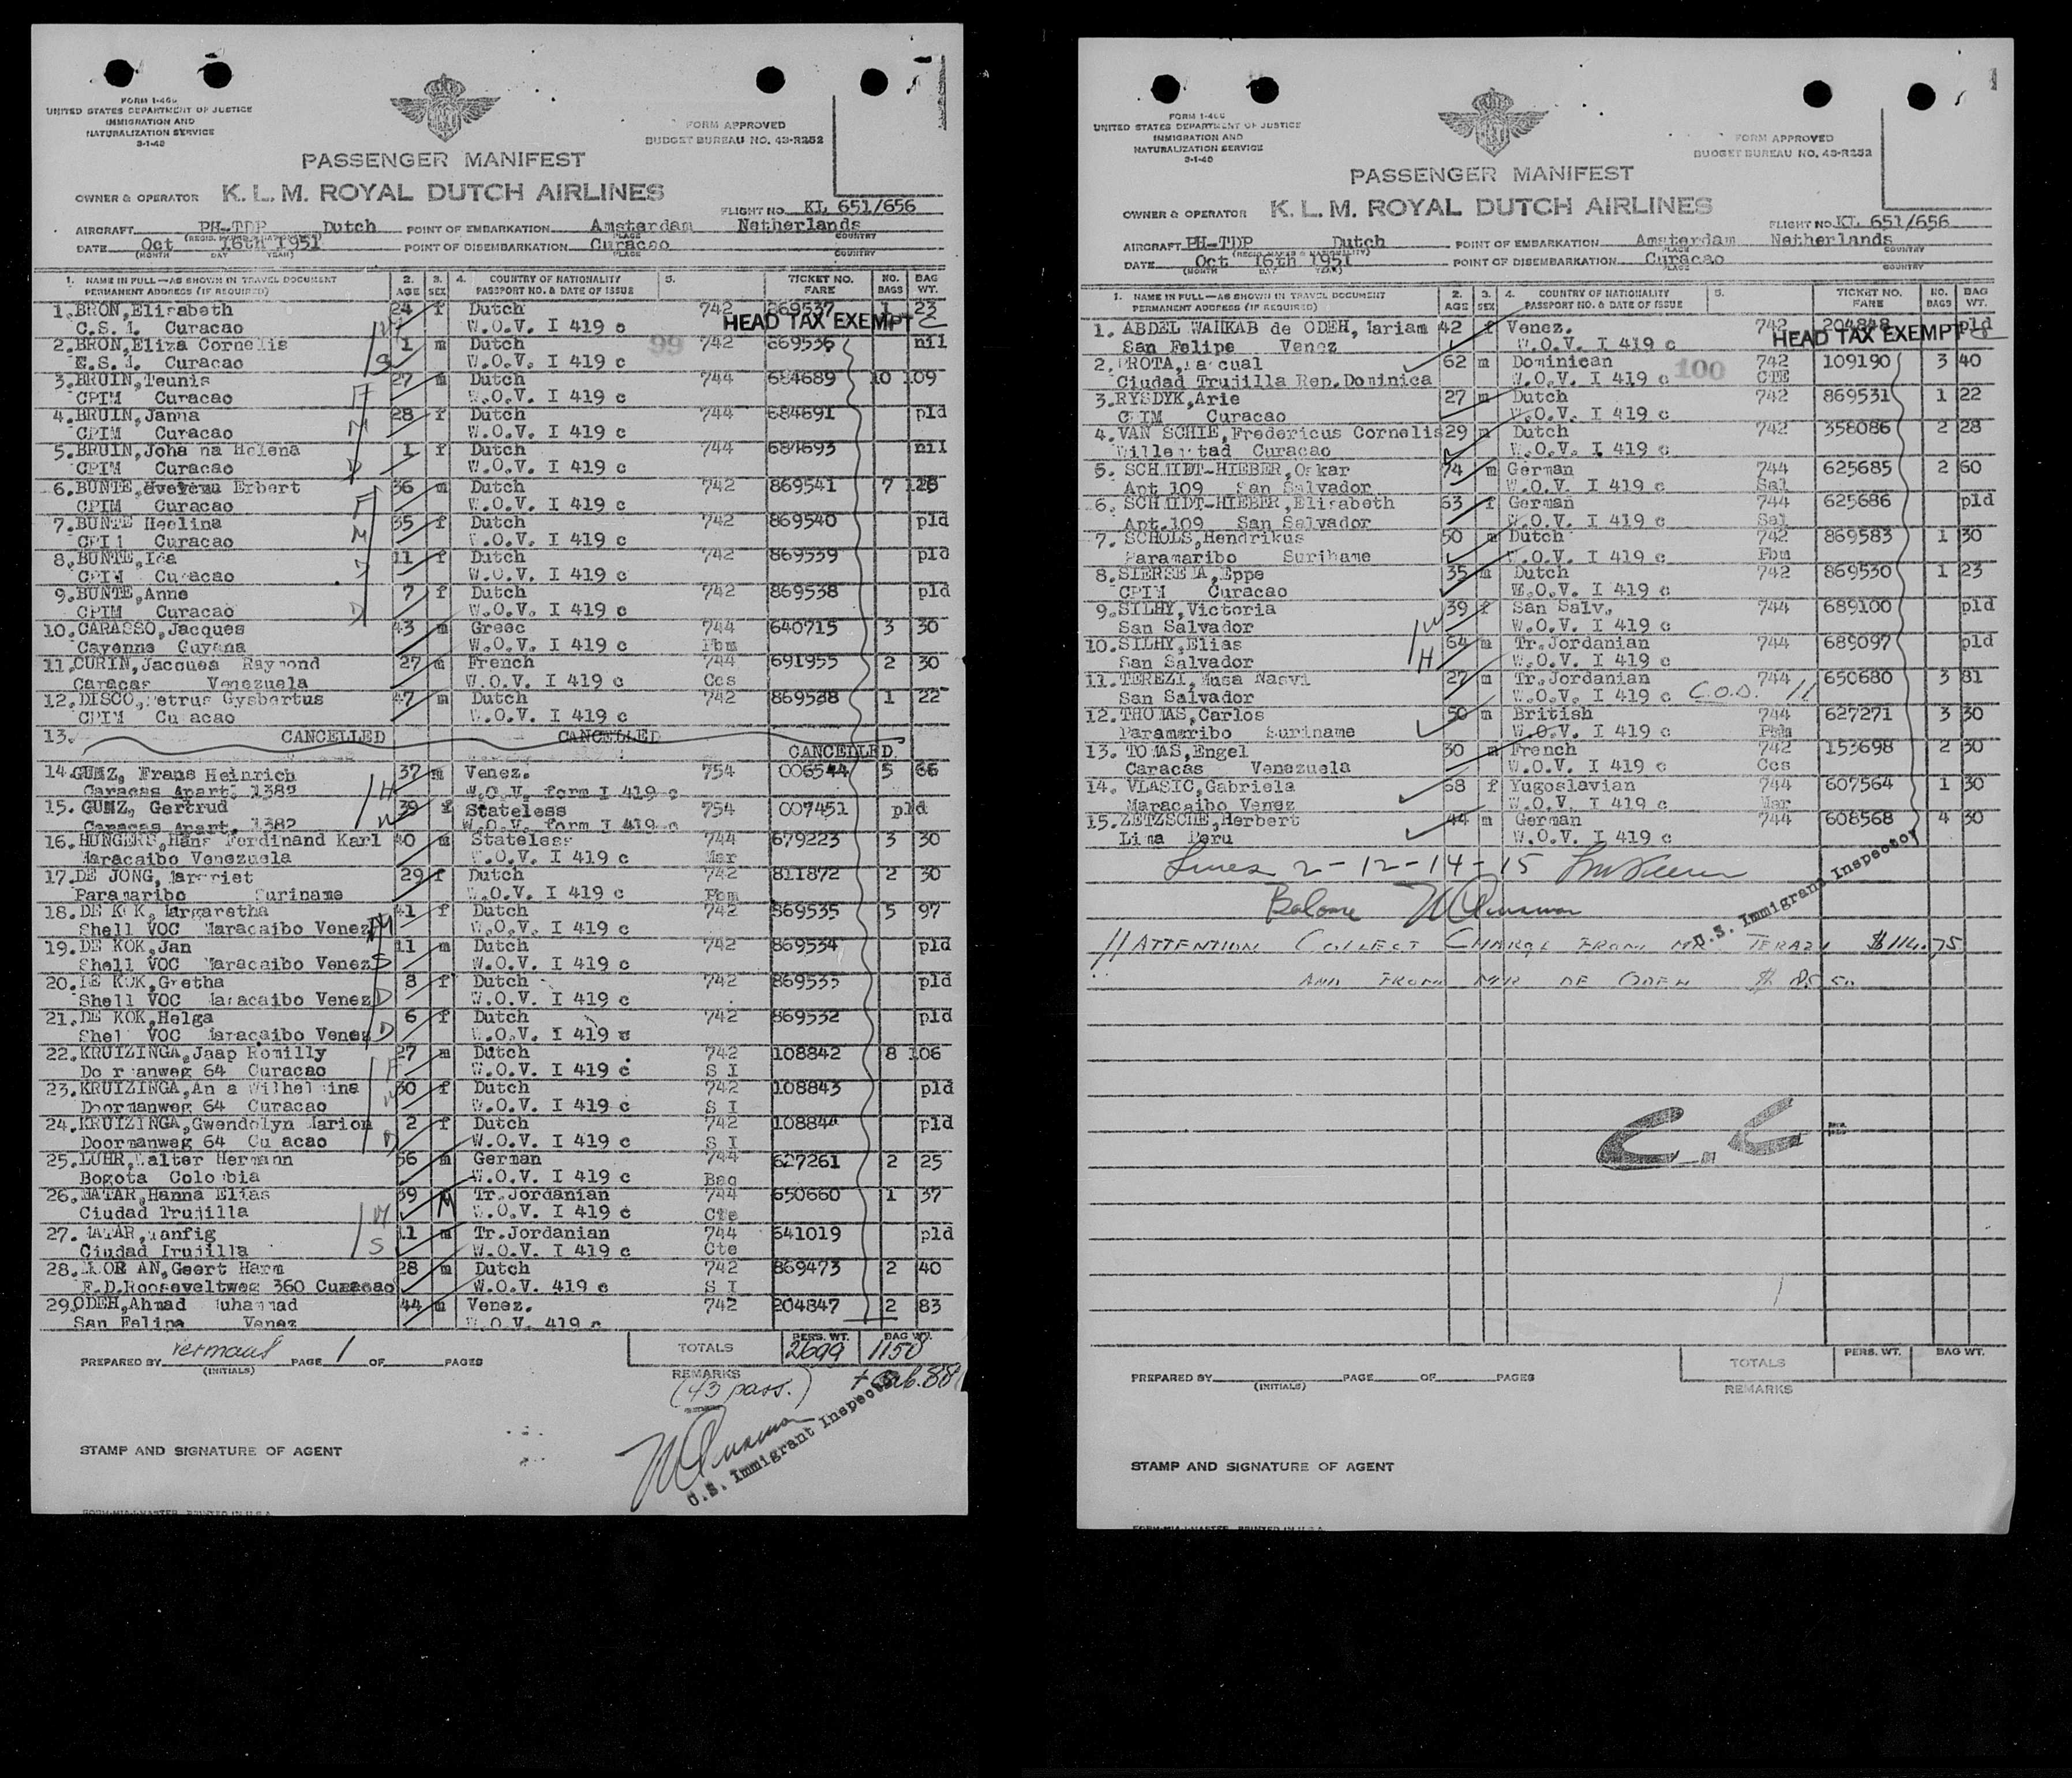 FORM I-466
UNITED STATES DEPARTMENT OF JUSTICE
IMMIGRATION AND
NATURALIZATION SERVICE
3-1-48
FORM APPROVED
BUDGET BUREAU NO. 43-R252
PASSENGER MANIFEST
OWNER & OPERATOR K. L. M. ROYAL DUTCH AIRLINES
FLIGHT NO. KL 651/656
AIRCRAFT PH-TDP Dutch POINT OF EMBARKATION Amsterdam Netherlands
DATE Oct 16th 1951 POINT OF DISEMBARKATION Curacao
(MONTH DAY YEAR) PLACE COUNTRY
1. NAME IN FULL—AS SHOWN IN TRAVEL DOCUMENT 2. 3. 4. COUNTRY OF NATIONALITY 5. TICKET NO. NO. BAG
PERMANENT ADDRESS (IF REQUIRED) AGE SEX PASSPORT NO. & DATE OF ISSUE FARE BAGS WT.
1. BRON, Elisabeth 24 f Dutch 742 869537 1 23
C.S. Curacao W.O.V. I 419 c HEAD TAX EXEMPT
2. BRON, Eliza Cornelis 1 m Dutch 99 742 869536 nil
Curacao W.O.V. I 419 c
3. BRUIN, Teunis 27 m Dutch 744 684689 10 109
CPIM Curacao W.O.V. I 419 c
4. BRUIN, Janna 28 f Dutch 744 684691 pld
CPIM Curacao W.O.V. I 419 c
5. BRUIN, Joha na Helena 1 f Dutch 744 684693 nil
CPIM Curacao W.O.V. I 419 c
6. BUNTE, Erbert 36 m Dutch 742 869541 7
CPIM Curacao W.O.V. I 419 c
7. BUNTE Heelina 35 f Dutch 742 869540 pld
Curacao W.O.V. I 419 c
8. BUNTE, Ida 11 f Dutch 742 869539 pld
CPIM Curacao W.O.V. I 419 c
9. BUNTE, Anne 7 f Dutch 742 869538 pld
CPIM Curacao W.O.V. I 419 c
10. CARASSO, Jacques 43 m Greec 744 640715 3 30
Cayenne Guyana W.O.V. I 419 c Pbm
11. CURIN, Jacques Raymond 27 m French 744 691955 2 30
Caracas Venezuela W.O.V. I 419 c Ccs
12. DISCO, Petrus Gysbertus 47 m Dutch 742 869528 1 22
CPIM Cu acao W.O.V. I 419 c
13. CANCELLED CANCELLED CANCELLED
14. GUNZ, Frans Heinrich 37 m Venez. 754 006544 5 66
Caracas Apart. 1382 W.O.V. form I 419 c
15. GUNZ, Gertrud 39 f Stateless 754 007451 pld
Caracas Apart. 1382 W.O.V. form I 419 c
16. HUNGERS, Hans Ferdinand Karl 40 m Stateless 744 679223 3 30
Maracaibo Venezuela W.O.V. I 419 c Mar
17. DE JONG, Harriet 29 f Dutch 742 811872 2 30
Paramaribo Suriname W.O.V. I 419 c Pbm
18. DE KOK, Margaretha 41 f Dutch 742 869535 5 97
Shell VOC Maracaibo Venez W.O.V. I 419 c
19. DE KOK, Jan 11 m Dutch 742 869534 pld
Shell VOC Maracaibo Venez W.O.V. I 419 c
20. DE KOK, Gretha 8 f Dutch 742 869533 pld
Shell VOC Maracaibo Venez W.O.V. I 419 c
21. DE KOK, Helga 6 f Dutch 742 869532 pld
Shel VOC Maracaibo Venez W.O.V. I 419 c
22. KRUIZINGA, Jaap Romilly 27 m Dutch 742 108842 8 106
Do r anweg 64 Curacao W.O.V. I 419 c S I
23. KRUIZINGA, An a Wilhel ina 30 f Dutch 742 108843 pld
Doormanweg 64 Curacao W.O.V. I 419 c S I
24. KRUIZINGA, Gwendolyn Marion 2 f Dutch 742 108844 pld
Doormanweg 64 Cu acao W.O.V. I 419 c S I
25. LUHR, Walter Hermann 56 m German 744 627261 2 25
Bogota Colo bia W.O.V. I 419 c Bag
26. MATAR, Hanna Elias 39 M Tr. Jordanian 744 650660 1 37
Ciudad Trujilla W.O.V. I 419 c Cte
27. MATAR, Tanfig 11 m Tr. Jordanian 744 641019 pld
Ciudad Trujilla W.O.V. I 419 c Cte
28. MOOR AN, Geert Harm 28 m Dutch 742 869473 2 40
F.D. Rooseveltweg 360 Curacao W.O.V. 419 c S I
29. ODEH, Ahmad Muhammad 44 m Venez. 742 204847 2 83
San Felipe Venez W.O.V. 419 c
PREPARED BY PAGE 1 OF PAGES
(INITIALS)
TOTALS PERS. WT. 2699 BAG WT. 1158
REMARKS
(43 pass.)
U.S. Immigrant Inspector
STAMP AND SIGNATURE OF AGENT
FORM UNITED STATES DEPARTMENT OF JUSTICE
IMMIGRATION AND
NATURALIZATION SERVICE
3-1-48
FORM APPROVED
BUDGET BUREAU NO. 43-R252
PASSENGER MANIFEST
OWNER & OPERATOR K. L. M. ROYAL DUTCH AIRLINES
FLIGHT NO. KL 651/656
AIRCRAFT PH-TDP Dutch POINT OF EMBARKATION Amsterdam Netherlands
DATE Oct 16th 1951 POINT OF DISEMBARKATION Curacao
(MONTH DAY YEAR) PLACE COUNTRY
1. NAME IN FULL—AS SHOWN IN TRAVEL DOCUMENT 2. 3. 4. COUNTRY OF NATIONALITY 5. TICKET NO. NO. BAG
PERMANENT ADDRESS (IF REQUIRED) AGE SEX PASSPORT NO. & DATE OF ISSUE FARE BAGS WT.
1. ABDEL WAHKAB de ODEH, Mariam 42 f Venez. 742 204848 pld
San Felipe Venez W.O.V. I 419 c HEAD TAX EXEMPT
2. PROTA, Pa cual 62 m Dominican 100 742 109190 3 40
Ciudad Trujilla Rep. Dominica W.O.V. I 419 c CTE
3. RYSDYK, Arie 27 m Dutch 742 869531 1 22
CPIM Curacao W.O.V. I 419 c
4. VAN SCHIE, Fredericus Cornelis 29 m Dutch 742 358086 2 28
Wille tad Curacao W.O.V. I 419 c
5. SCHMIDT-HIEBER, Oskar 74 m German 744 625685 2 60
Apt 109 San Salvador W.O.V. I 419 c Sal
6. SCHMIDT-HIEBER, Elisabeth 63 f German 744 625686 pld
Apt. 109 San Salvador W.O.V. I 419 c Sal
7. SCHOLS, Hendrikus 50 m Dutch 742 869583 1 30
Paramaribo Suriname W.O.V. I 419 c Pbm
8. SIERSEMA, Eppe 35 m Dutch 742 869530 1 23
CPIM Curacao W.O.V. I 419 c
9. SILHY, Victoria 39 f San Salv. 744 689100 pld
San Salvador W.O.V. I 419 c
10. SILHY, Elias 64 m Tr. Jordanian 744 689097 pld
San Salvador W.O.V. I 419 c
11. TEREZI, Musa Nasvi 27 m Tr. Jordanian 744 650680 3 81
San Salvador W.O.V. I 419 c C.O.D. //
12. THOMAS, Carlos 50 m British 744 627271 3 30
Paramaribo Suriname W.O.V. I 419 c Pbm
13. TOMAS, Engel 30 m French 742 153698 2 30
Caracas Venezuela W.O.V. I 419 c Ccs
14. VLASIC, Gabriela 68 f Yugoslavian 744 607564 1 30
Maracaibo Venez W.O.V. I 419 c Mar
15. ZETZSCHE, Herbert 44 m German 744 608568 4 30
Lima Peru W.O.V. I 419 c
Lines 2-12-14-15
Balance
U.S. Immigrant Inspector
// ATTENTION COLLECT CHARGE FROM MR. TERAZI $114.75
AND FROM MR DE ODEH
C.C
TOTALS PERS. WT. BAG WT.
PREPARED BY PAGE OF PAGES
(INITIALS)
REMARKS
STAMP AND SIGNATURE OF AGENT